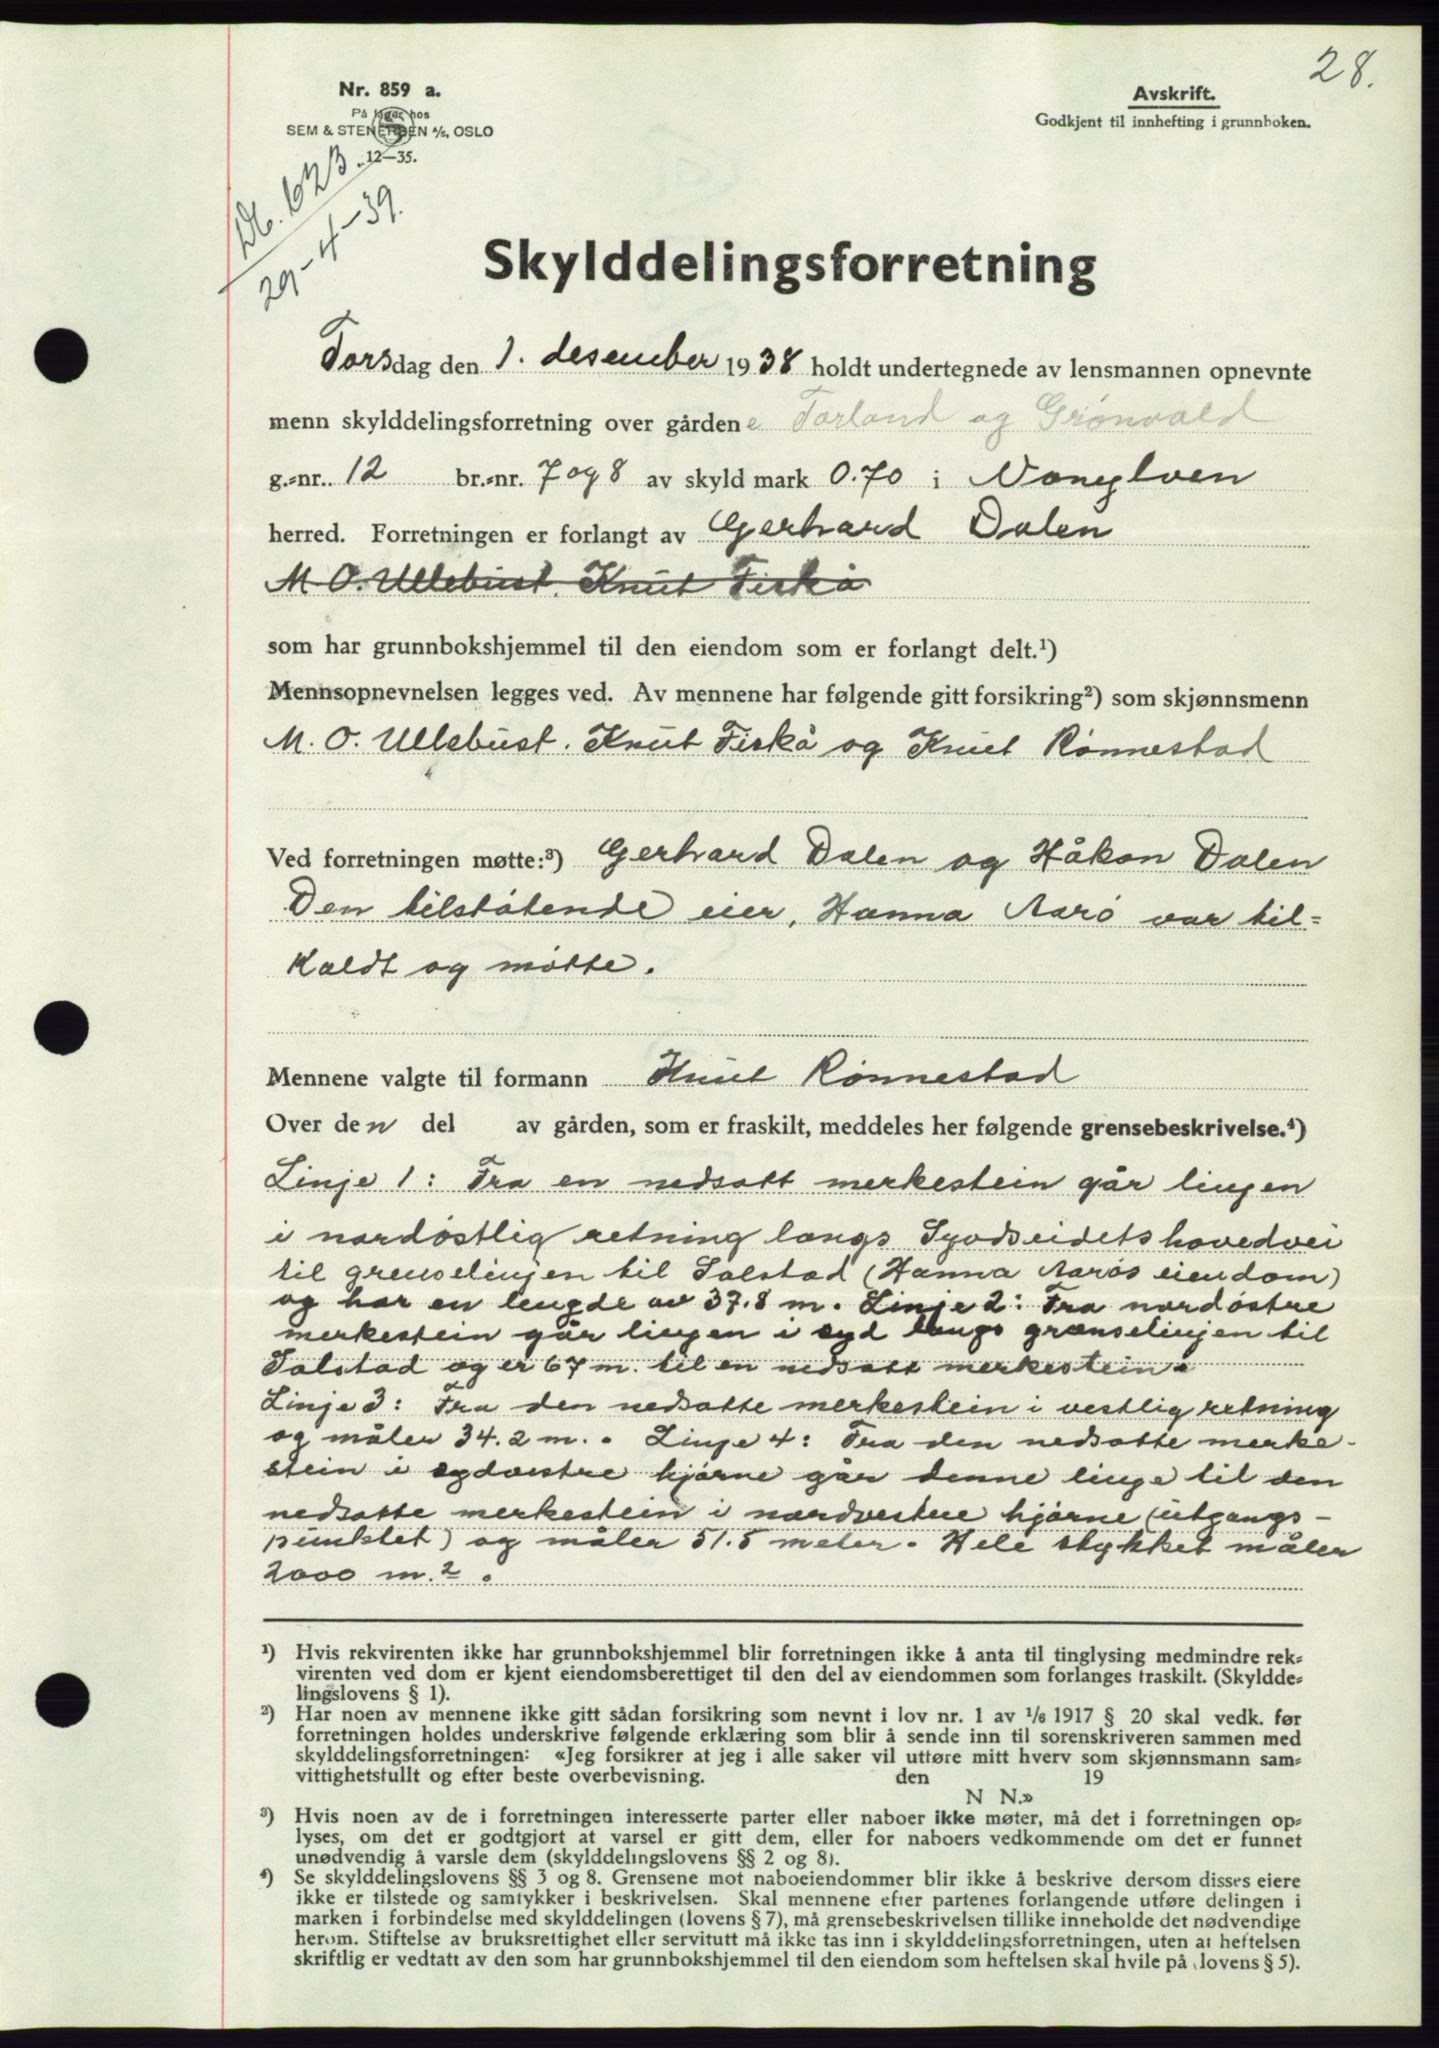 28.
Nr. 859 a.
På lager hos
SEM & STENERSEN A/S, OSLO
12-35.
Avskrift.
Godkjent til innhefting i grunnboken.
Db. 623
29-4-39.
Skylddelingsforretning
Torsdag den 1. desember 1938 holdt undertegnede av lensmannen opnevnte
menn skylddelingsforretning over gårdene Torland og Grønvold
g.=nr. 12 br.=nr. 7 og 8 av skyld mark 0.70 i Vanylven
herred. Forretningen er forlangt av Gerhard Dalen
M. O. Ullebust. Knut Fiskå
som har grunnbokshjemmel til den eiendom som er forlangt delt.¹)
Mennsopnevnelsen legges ved. Av mennene har følgende gitt forsikring²) som skjønnsmenn
M. O. Ullebust. Knut Fiskå og Knut Rønnestad
Ved forretningen møtte:³) Gerhard Dalen og Håkon Dalen
Den tilstøtende eier, Hanna Aarø var til=
kaldt og møtte.
Mennene valgte til formann Knut Rønnestad
Over den del av gården, som er fraskilt, meddeles her følgende grensebeskrivelse.⁴)
Linje 1: Fra en nedsatt merkestein går linjen
i nordøstlig retning langs Syvdseidets hovedvei
til grenselinjen til Solstad (Hanna Aarøs eiendom)
og har en lengde av 37.8 m. Linje 2: Fra nordøstre
merkestein går linjen i syd langs grenselinjen til
Solstad og er 67 m. til en nedsatt merkestein.
Linje 3: Fra den nedsatte merkestein i vestlig retning
og måler 34.2 m. Linje 4: Fra den nedsatte merke-
stein i sydvestre hjørne går denne linje til den
nedsatte merkestein i nordvestre hjørne (utgangs-
punktet) og måler 51.5 meter. Hele stykket måler
2000 m.².
¹) Hvis rekvirenten ikke har grunnbokshjemmel blir forretningen ikke å anta til tinglysing medmindre rek=
virenten ved dom er kjent eiendomsberettiget til den del av eiendommen som forlanges fraskilt. (Skyldde=
lingslovens § 1).
²) Har noen av mennene ikke gitt sådan forsikring som nevnt i lov nr. 1 av 1/6 1917 § 20 skal vedk. før
forretningen holdes underskrive følgende erklæring som blir å sende inn til sorenskriveren sammen med
skylddelingsforretningen: «Jeg forsikrer at jeg i alle saker vil utføre mitt hverv som skjønnsmann sam=
vittighetsfullt og efter beste overbevisning. den 19
N N.»
³) Hvis noen av de i forretningen interesserte parter eller naboer ikke møter, må det i forretningen op=
lyses, om det er godtgjort at varsel er gitt dem, eller for naboers vedkommende om det er funnet
unødvendig å varsle dem (skylddelingslovens §§ 2 og 8).
⁴) Se skylddelingslovens §§ 3 og 8. Grensene mot naboeiendommer blir ikke å beskrive dersom disses eiere
ikke er tilstede og samtykker i beskrivelsen. Skal mennene efter partenes forlangende utføre delingen i
marken i forbindelse med skylddelingen (lovens § 7), må grensebeskrivelsen tillike inneholde det nødvendige
herom. Stiftelse av bruksrettighet eller servitutt må ikke tas inn i skylddelingsforretningen, uten at heftelsen
skriftlig er vedtatt av den som har grunnbokshjemmel til den eiendom som heftelsen skal hvile på (lovens § 5).